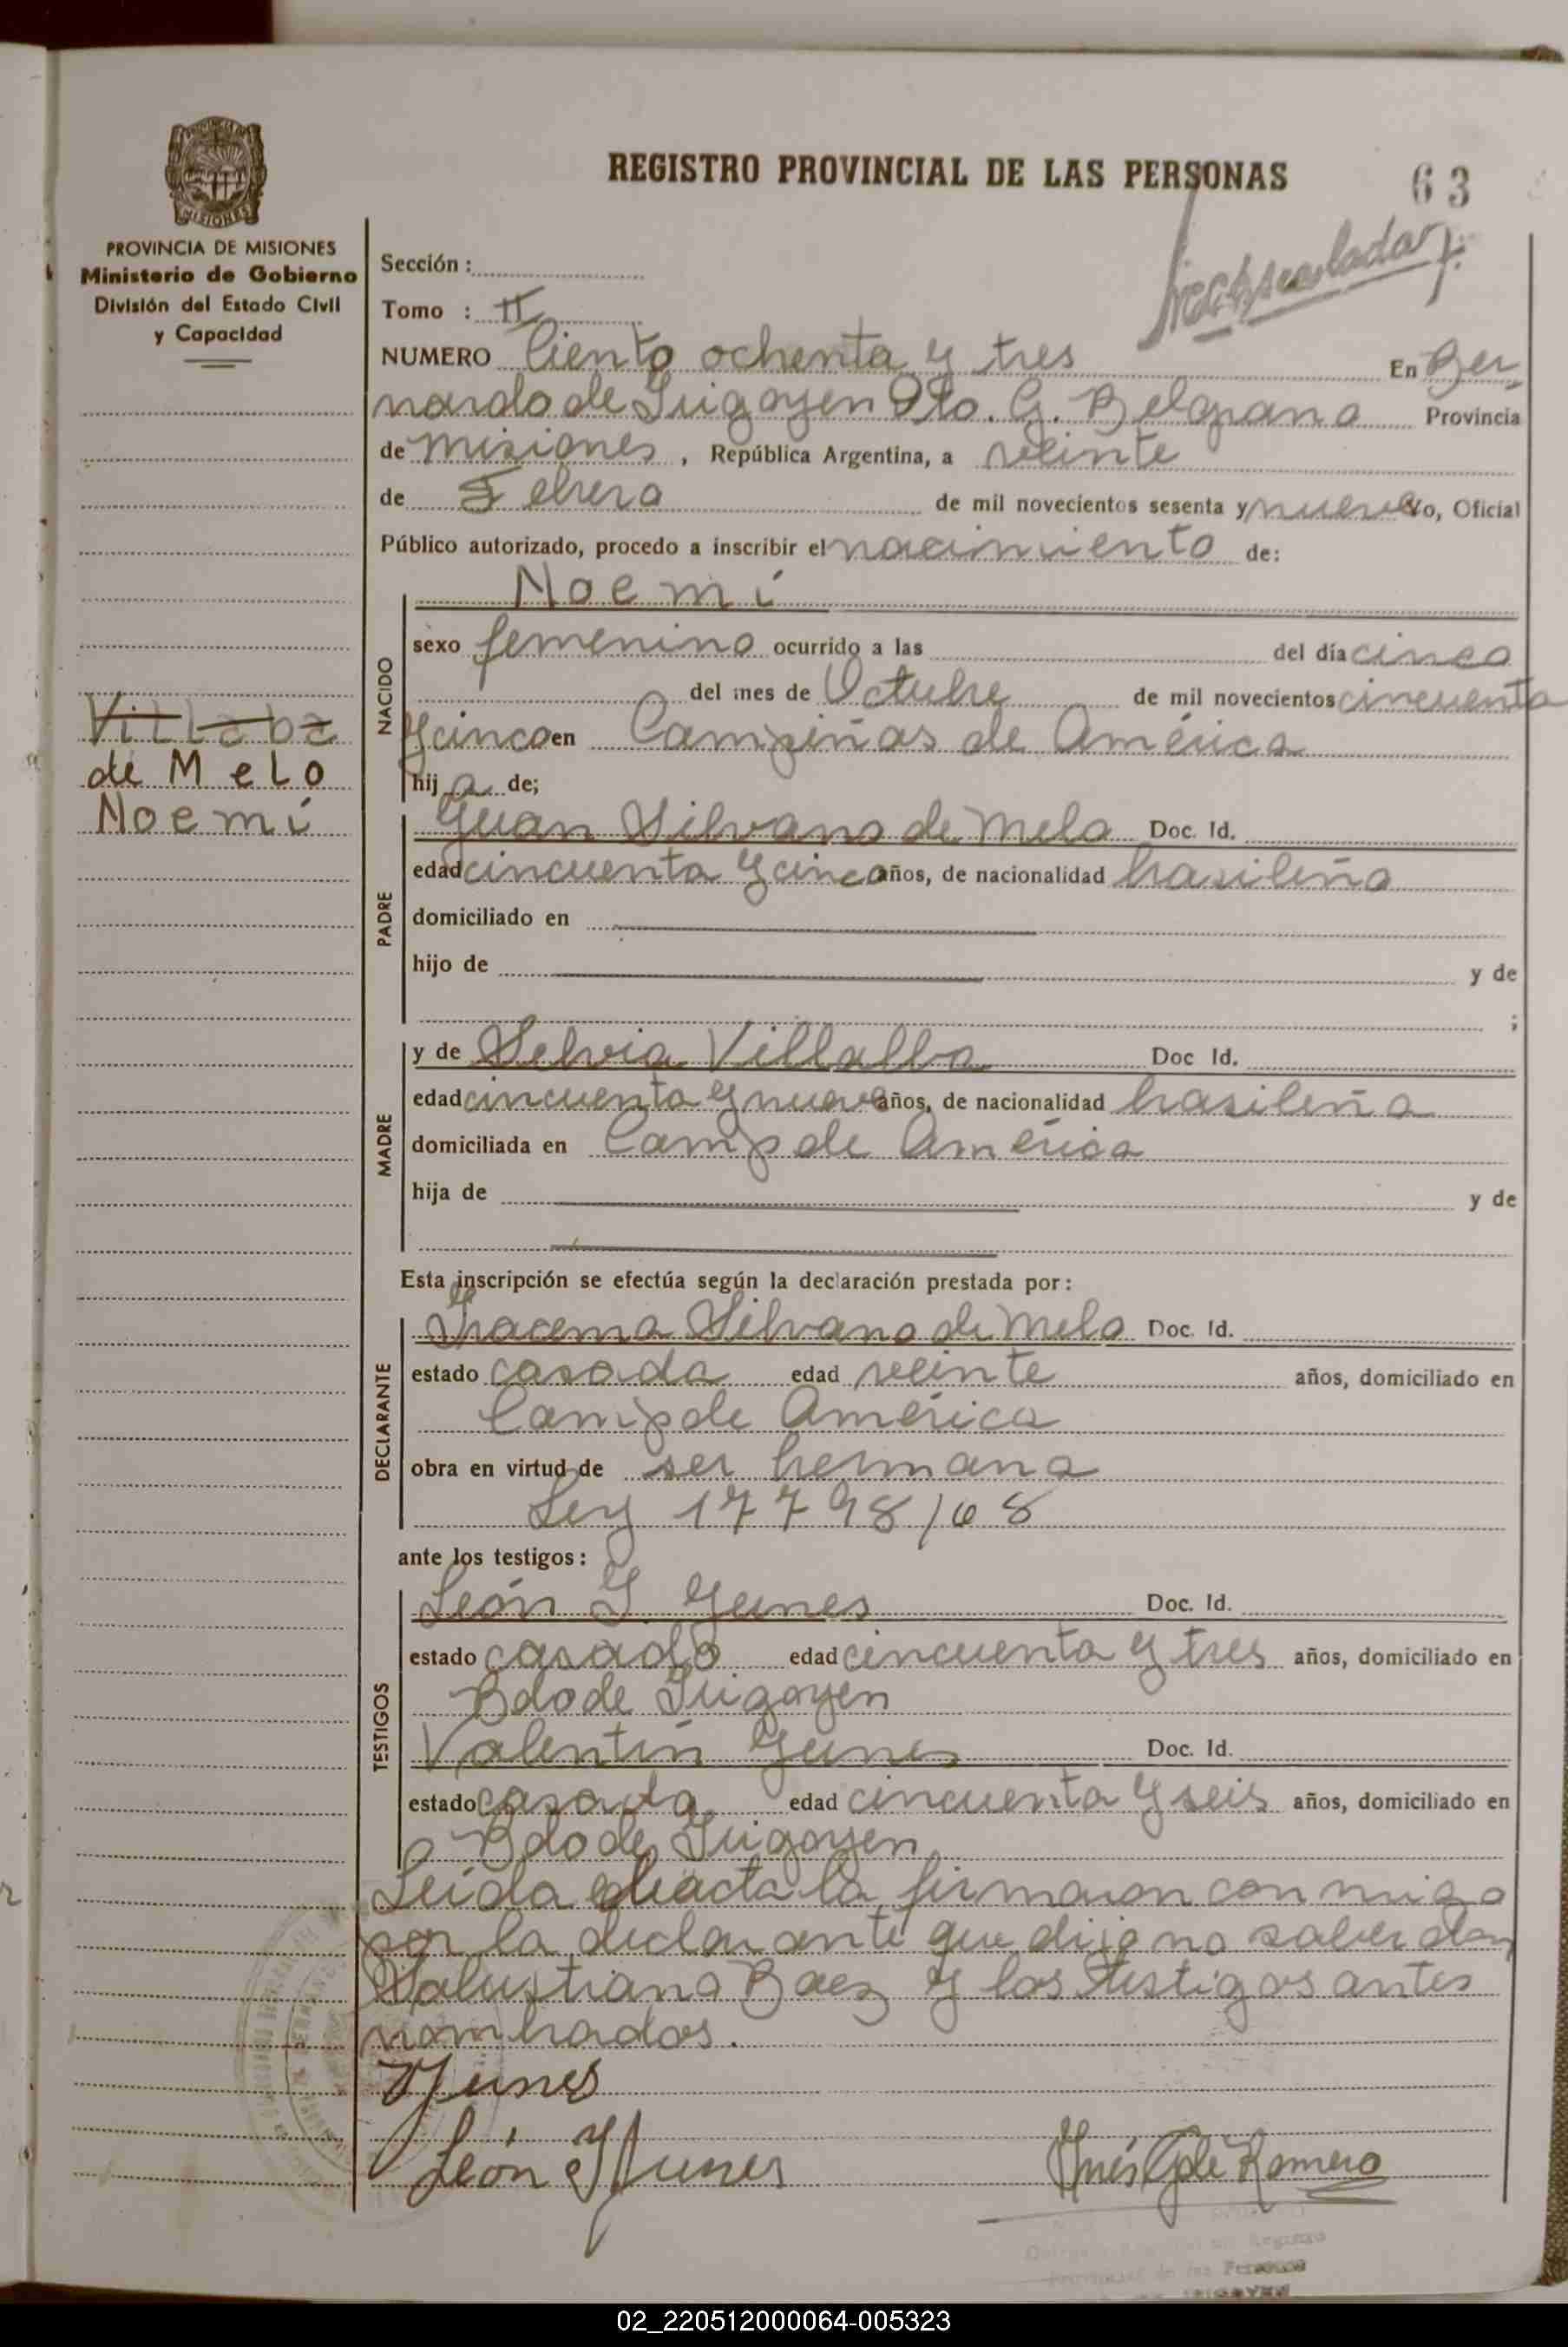 REGISTRO PROVINCIAL DE LAS PERSONAS
63
PROVINCIA DE MISIONES
Ministerio de Gobierno
División del Estado Civil
y Capacidad
Sección :
Tomo : II
NUMERO Ciento ochenta y tres En Ber-
nardo de Irigoyen Dto. G. Belgrano Provincia
de misiones, República Argentina, a veinte
de Febrero de mil novecientos sesenta y nueve Yo, Oficial
Público autorizado, procedo a inscribir el nacimiento de:
Noemí
NACIDO
sexo femenino ocurrido a las del día cinco
del mes de Octubre de mil novecientos cincuenta
y cinco en Campiñas de América
hija de;
de Melo
Noemí
PADRE
Juan Silvano de Melo Doc. Id.
edad cincuenta y cinco años, de nacionalidad brasileño
domiciliado en
hijo de y de
;
MADRE
y de Selvia Villalba Doc Id.
edad cincuenta y nueve años, de nacionalidad brasileña
domiciliada en Camp de América
hija de y de
Esta inscripción se efectúa según la declaración prestada por:
DECLARANTE
Iracema Silvano de Melo Doc. Id.
estado casada edad veinte años, domiciliado en
Camp de América
obra en virtud de ser hermana
Ley 17798/68
ante los testigos:
TESTIGOS
León Y. Yunes Doc. Id.
estado casado edad cincuenta y tres años, domiciliado en
Bdo de Irigoyen
Valentín Yunes Doc. Id.
estado casado edad cincuenta y seis años, domiciliado en
Bdo de Irigoyen
Leida el acta la firmaron con migo
por la declarante que dijo no saber don
Salustiano Baez y los testigos antes
nombrados.
Yunes
León Y Yunes
Inés G de Romero
02_220512000064-005323